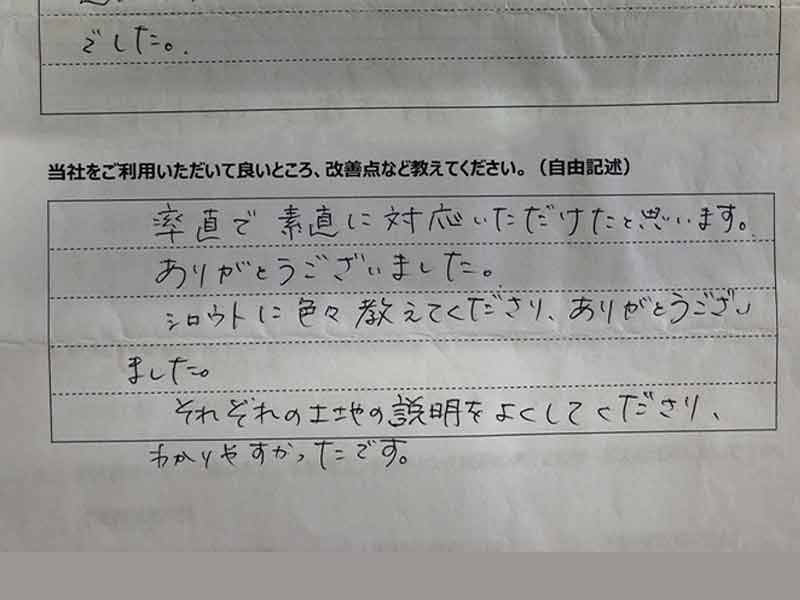 でした。
当社をご利用いただいて良いところ、改善点など教えてください。（自由記述）
率直で素直に対応いただけたと思います。
ありがとうございました。
シロウトに色々教えてくださり、ありがとうござい
ました。
それぞれの土地の説明をよくしてくださり、
わかりやすかったです。